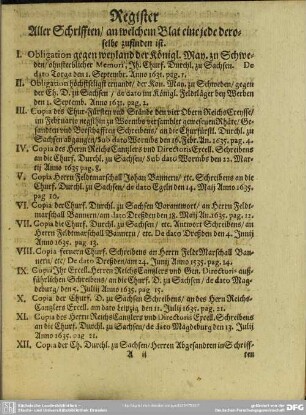 Register
Aller Schrifften/ an welchem Blat eine jede dero-
selbe zufinden ist.
I. Obligation gegen weyland der Königl. May. zu Schwe-
den/ Churf. Durchl. zu Sachsen. De
dato Torga den 1. Septembr. Anno 1631. pag. 1.
II. Obligation höchstseligst ernandt/ der Kön. May. zu Schweden/ gegen
der Ch. D. zu Sachsen/ de dato im Königl. Feldläger bey Werben
den 1. Septemb. Anno 1631. pag. 2.
III. Copia des Chur-Fürsten und Stände den vier Obern Reichs Croysse/
im Februario zu Wormbs versamblet gewesene Räthe, Ge-
sandten und Bottschafften Schreibens/ an die Churfürstl. Durchl. zu
Sachsen abgangen/ sub dato Wormbs den 16. Febr. An. 1635. pag. 4.
IV. Copia des Herrn Reichs Canzlers und Directorii Excell. Schreibens
an die Churf. Durchl. zu Sachsen/ sub dato Wormbs den 12. Mar-
tij Anno 1635 pag. 8.
V. Copia Herrn Feldmarschall Johan Bannern/ etc. Schreibens an
die Churf. Durchl. zu Sachsen/ de dato Egeln den 14. Maij Ao. 1635.
pag 10.
VI. Copia der Churf. Durchl. zu Sachsen Vorantwort/ an Herrn Feld-
marschall Bannern/ am dato Dreßden den 28. Maij An. 1635. pag. 12.
VII. Copia der Churf. Durchl. zu Sachsen/ etc. Antwort Schreibens/ an
Herrn Feldmarschall Bannern/ etc. De dato Dreßden den 4. Junij
Anno 1635. pag 13.
VIII. Copia fernern Churf. Schreibens an Herrn FeldMarschall Ban-
nern/ etc/ De dato Dreßden/ den 24. Junij Anno 1635. pag. 14.
IX. Copia Ihr Excell. Herrn Reichs Canzlers und Gen. Directorii auß-
führlichen Schreibens/ an die Churf. D. zu Sachsen/ de dato Mag-
deburg/ den 5. Julij Anno 1635. pag 15.
X. Copia der Churf. D. zu Sachsen Schreibens/ an des Herrn Reichs
Canzlers Excell. am dato Leipzig den 11. Julij Anno 1635. pag. 21.
XI. Copia des Herrn Reichs Canzlers und Directorii Excell. Schreibens
an die Churf. Durchl. zu Sachsen/ de dato Magdeburg den 13. Julij
Anno 1635. pag 21.
XII. Copia der Ch. Durchl. zu Sachsen/ Herren Abgesandten in Schriff-
A ii
ten